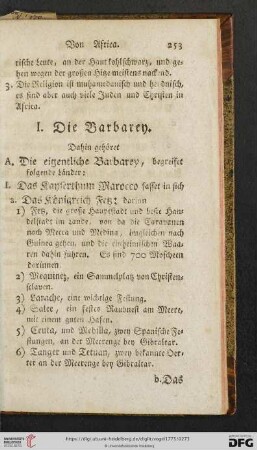 Von Africa. 253
rische Leute, an der Haut kohlschwarz, und ge-
hen wegen der grossen Hitze meistens nackend.
3. Die Religion ist muhamedanisch und heydnisch,
es sind aber auch viele Juden und Christen in
Africa.
I. Die Barbarey.
Dahin gehöret
A. Die eigentliche Barbarey, begreifet
folgende Länder:
I. Das Kayserthum Marocco fasset in sich
a. Das Königreich Fetz: darinn
1) Fetz, die große Hauptstadt und beste Han-
delstadt im Lande, von da die Caravanen
nach Mecca und Medina, imgleichen nach
Guinea gehen, und die einheimischen Waa-
ren dahin führen. Es sind 700 Moscheen
darinnen
2) Mequinez, ein Sammelplatz von Christen-
sclaven.
3) Larache, eine wichtige Festung.
4) Salee, ein festes Raubnest am Meere,
mit einem guten Hafen.
5) Ceuta, und Melilla, zwey Spanische Fe-
stungen, an der Meerenge bey Gibraltar.
6) Tanger und Tetuan, zwey bekannte Oer-
ter an der Meerenge bey Gibraltar.
b. Das
UNIVERSITÄTS-BIBLIOTHEK HEIDELBERG
© Universitätsbibliothek Heidelberg
gefördert durch die
DFG